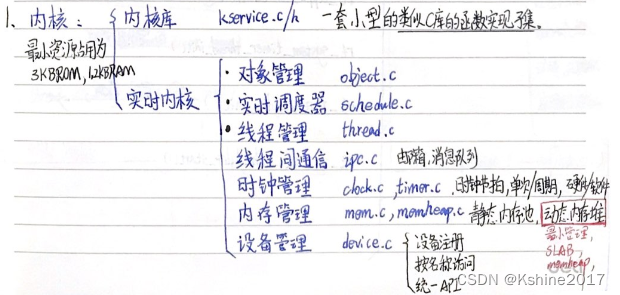 1. 内核: 内核库 kservice.c/h 一套小型的类似C库的函数实现子集.
最小资源占用为
3KBROM, 1.2KBRAM
实时内核
· 对象管理 object.c
· 实时调度器 schedule.c
· 线程管理 thread.c
线程间通信 ipc.c 邮箱,消息队列
时钟管理 clock.c, timer.c 时钟节拍,单次/周期,硬件/软件
内存管理 mem.c, memheap.c 静态内存池, 动态内存堆
最小管理,
SLAB,
memheap,
设备管理 device.c 设备注册
按名称访问
统一API
CSDN @Kshine2017